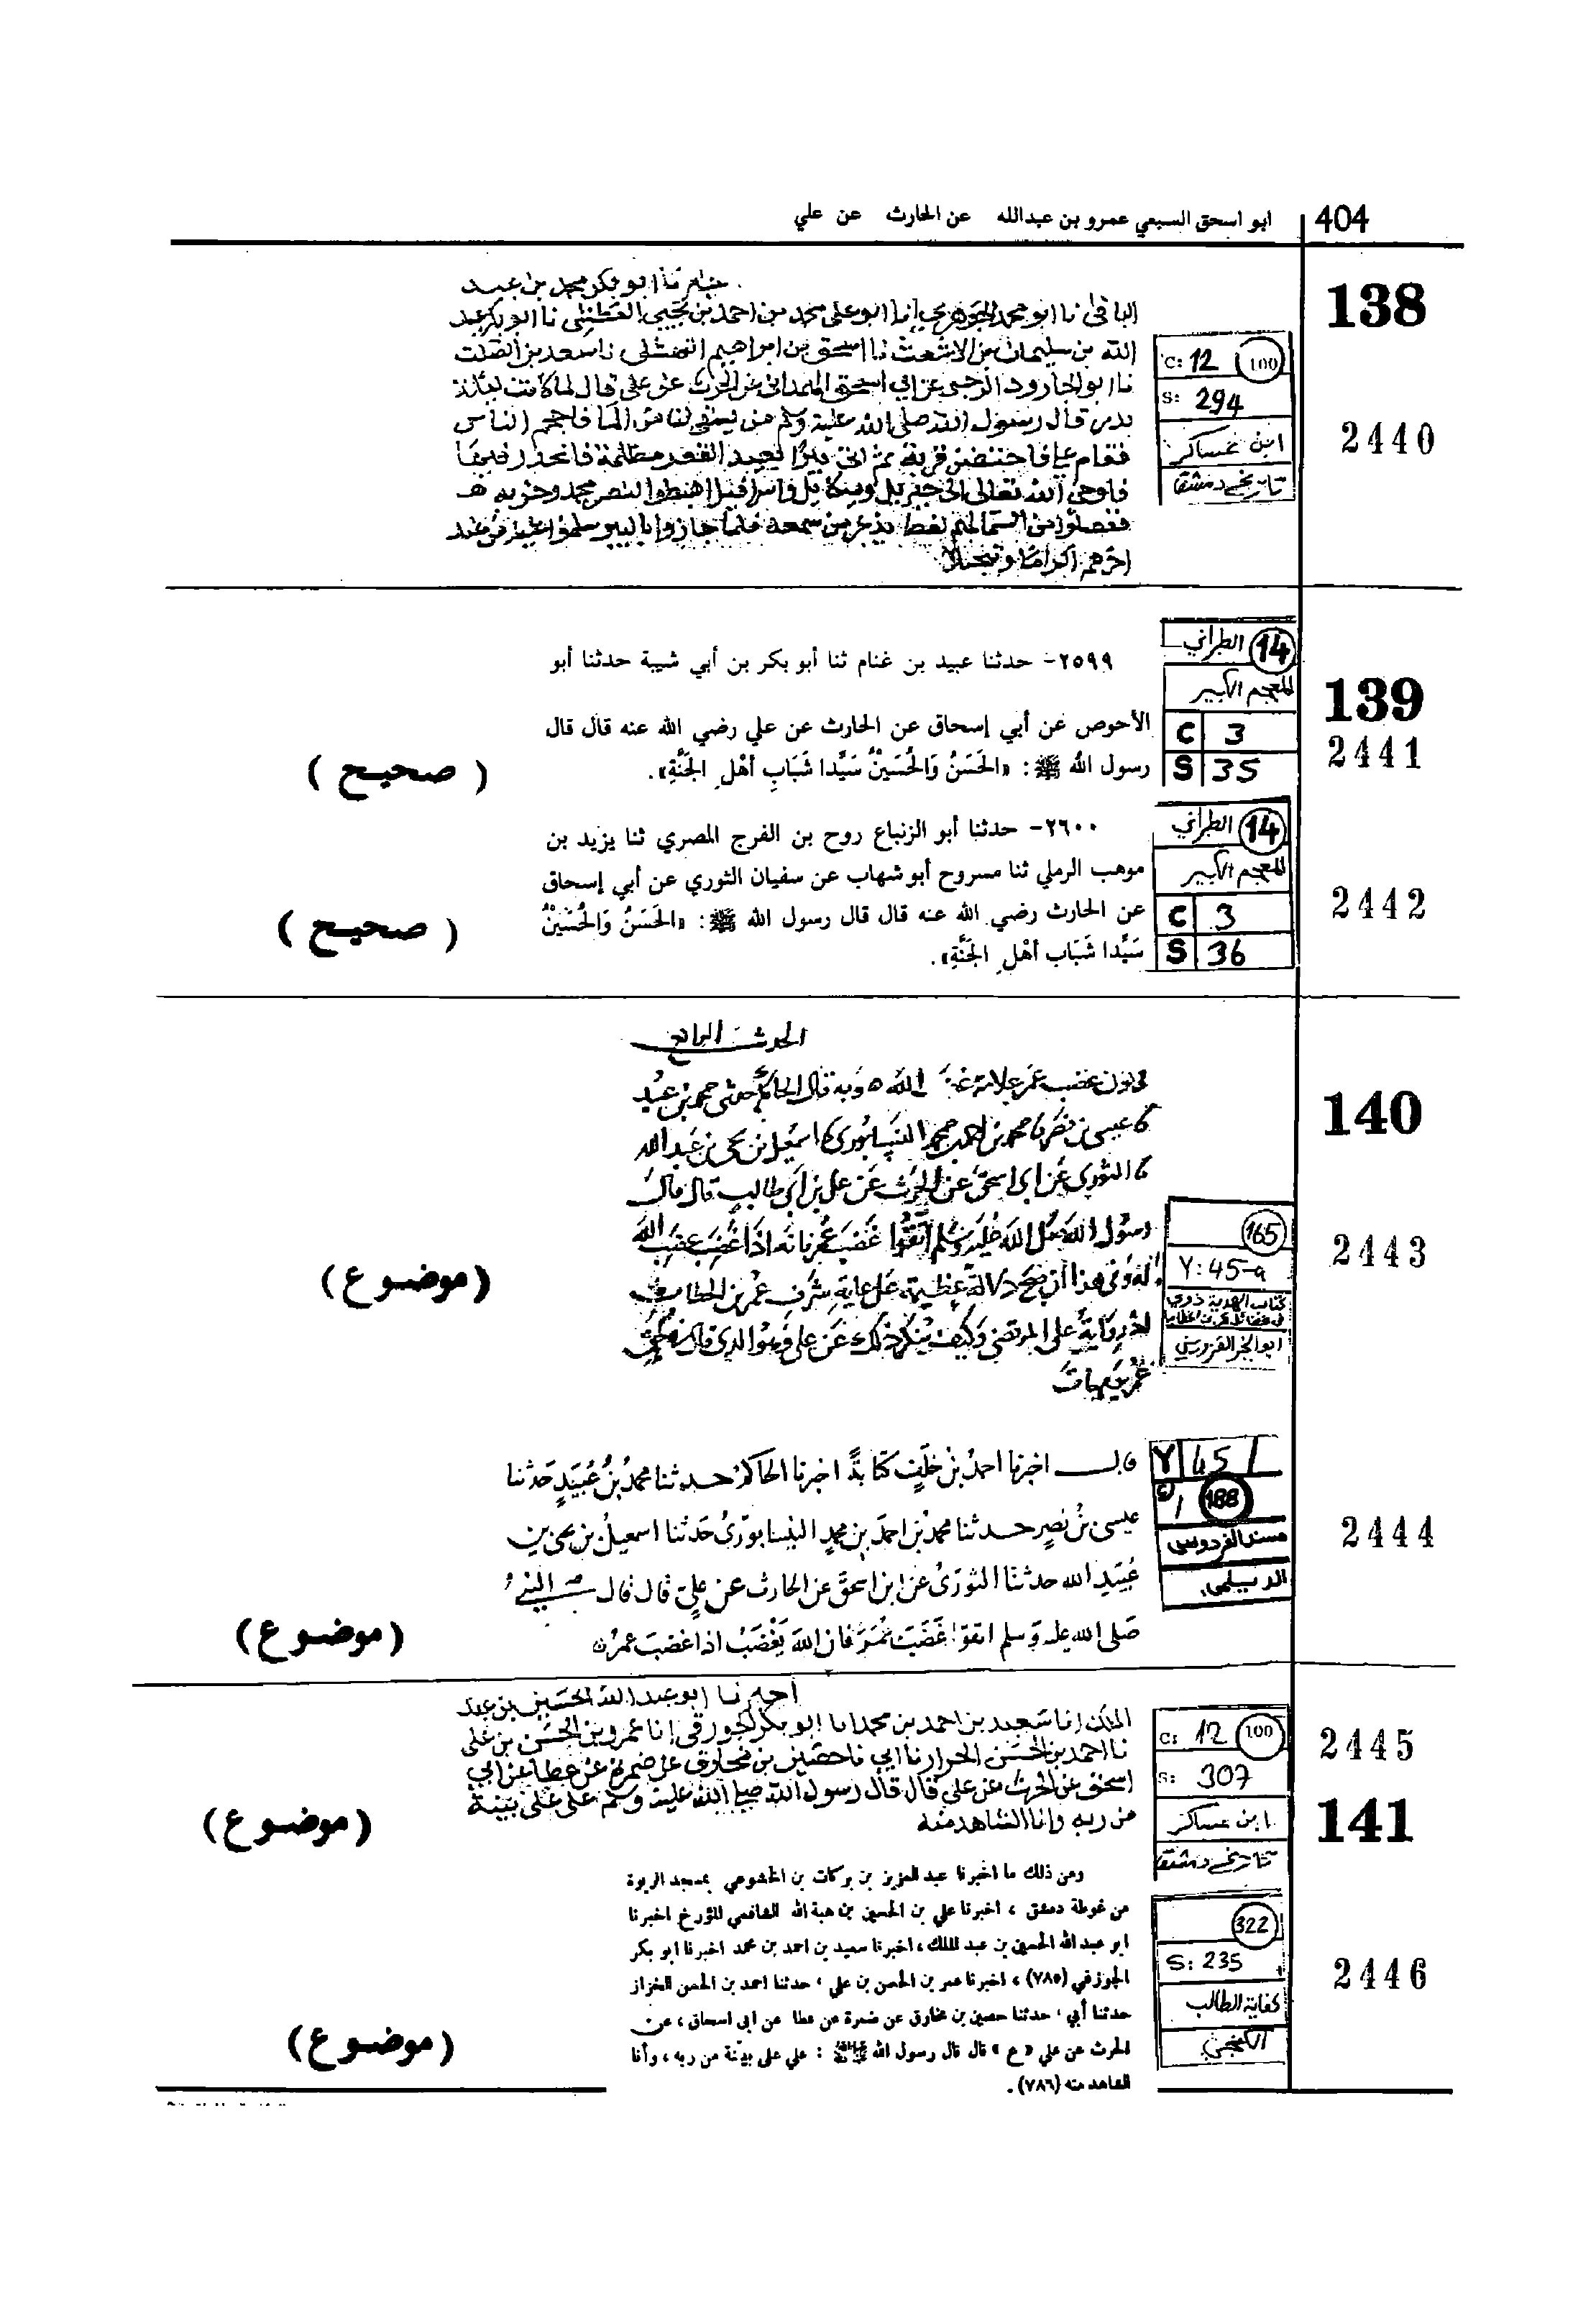 404
ابو اسحق السبعي عمرو بن عبدالله عن الحارث عن علي
138
نا ابو بكر محمد بن عبد
الباقي نا ابو محمد الجوهري انا ابو علي محمد بن احمد بن يحيى العطشي نا ابو بكر عبد
الله بن سليمان بن الاشعث نا اسحق بن ابراهيم النهشلي نا سعد بن الصلت
نا ابو الجارود الرحبي عن ابي اسحق الهمداني عن الحرث عن علي قال لما كانت ليلة
بدر قال رسول الله صلى الله عليه وسلم من يستقي لنا من الما فاحجم الناس
فقام علي فاحتضن قربة ثم اتى بئرا بعيد القعر مظلمة فانحدر فيها
فاوحى الله تعالى الى جبريل وميكايل واسرافيل اهبطوا لنصر محمد وحزبه
ففصلوا من السما لهم لغط يذعر من سمعه فلما جازوا بالبير سلموا عليه من عند
اخرهم اكراما وتبجيلا
C: 12 100
S: 294
ابن عساكر
تاريخ دمشق
2440
139
2441
14 الطبراني
المعجم الكبير
C 3
S 35
٢٥٩٩- حدثنا عبيد بن غنام ثنا أبو بكر بن أبي شيبة حدثنا أبو
الأحوص عن أبي إسحاق عن الحارث عن علي رضي الله عنه قال قال
رسول الله ﷺ: «الحَسَنُ وَالحُسَيْنُ سَيِّدا شَبَابِ أهْلِ الجَنَّةِ».
( صحيح )
2442
14 الطبراني
المعجم الكبير
C 3
S 36
٢٦٠٠- حدثنا أبو الزنباع روح بن الفرج المصري ثنا يزيد بن
موهب الرملي ثنا مسروح أبو شهاب عن سفيان الثوري عن أبي إسحاق
عن الحارث رضي الله عنه قال قال رسول الله ﷺ: «الحَسَنُ وَالحُسَيْنُ
سَيِّدا شَبَاب أهْلِ الجَنَّةِ».
( صحيح )
140
الحديث الرابع
في كون غضب عمر علامة غضب الله وبه قال الحاكم حدثني محمد بن عبيد
نا عيسى بن نصر نا محمد بن احمد بن محمد النيسابوري نا اسمعيل بن يحيى بن عبد الله
نا الثوري عن ابي اسحق عن الحرث عن علي بن ابي طالب قال قال
رسول الله صلى الله عليه وسلم اتقوا غضب عمر فانه اذا غضب غضب الله
له وفي هذا ان صح دلالة عظيمة على غاية شرف عمر بن الخطاب
رواية علي المرتضى وكيف ينكر ذلك عن علي وهو الذي قال
2443
165
Y: 45-a
ابو الخير القزويني
(موضوع)
2444
Y 45
188
مسند الفردوس
الديلمي
قال اخبرنا احمد بن خلف كتابة اخبرنا الحاكم حدثنا محمد بن عبيد حدثنا
عيسى بن نصر حدثنا محمد بن احمد بن محمد النيسابوري حدثنا اسمعيل بن يحيى بن
عبيد الله حدثنا الثوري عن ابن اسحق عن الحارث عن علي قال قال النبي
صلى الله عليه وسلم اتقوا غضب عمر فان الله يغضب اذا غضب عمر
(موضوع)
2445
141
C: 12 100
S: 307
ابن عساكر
تاريخ دمشق
اخبرنا ابو عبد الله الحسين بن عبد
الملك انا سعيد بن احمد بن محمد انا ابو بكر الجوزقي انا عمرو بن الحسن بن علي
نا احمد بن الحسن الخراز نا ابي نا حصين بن مخارق عن ضمرة عن عطا عن ابي
اسحق عن الحرث عن علي قال قال رسول الله صلى الله عليه وسلم علي على بينة
من ربه وانا الشاهد منه
(موضوع)
2446
322
S: 235
كفاية الطالب
الكنجي
ومن ذلك ما اخبرنا عبد العزيز بن بركات بن الخشوعي بمسجد الربوة
من غوطة دمشق ، اخبرنا علي بن الحسين بن هبة الله الشافعي المؤرخ اخبرنا
ابو عبد الله الحسين بن عبد الملك ، اخبرنا سعيد بن احمد بن محمد اخبرنا ابو بكر
الجوزقي (٧٨٥) ، اخبرنا عمر بن الحسن بن علي ، حدثنا احمد بن الحسن الخزاز
حدثنا أبي ، حدثنا حصين بن مخارق عن ضمرة عن عطا عن ابى اسحاق ، عن
الحرث عن علي «ع» قال قال رسول الله ﷺ : علي على بيّنة من ربه ، وأنا
الشاهد منه (٧٨٦) .
(موضوع)